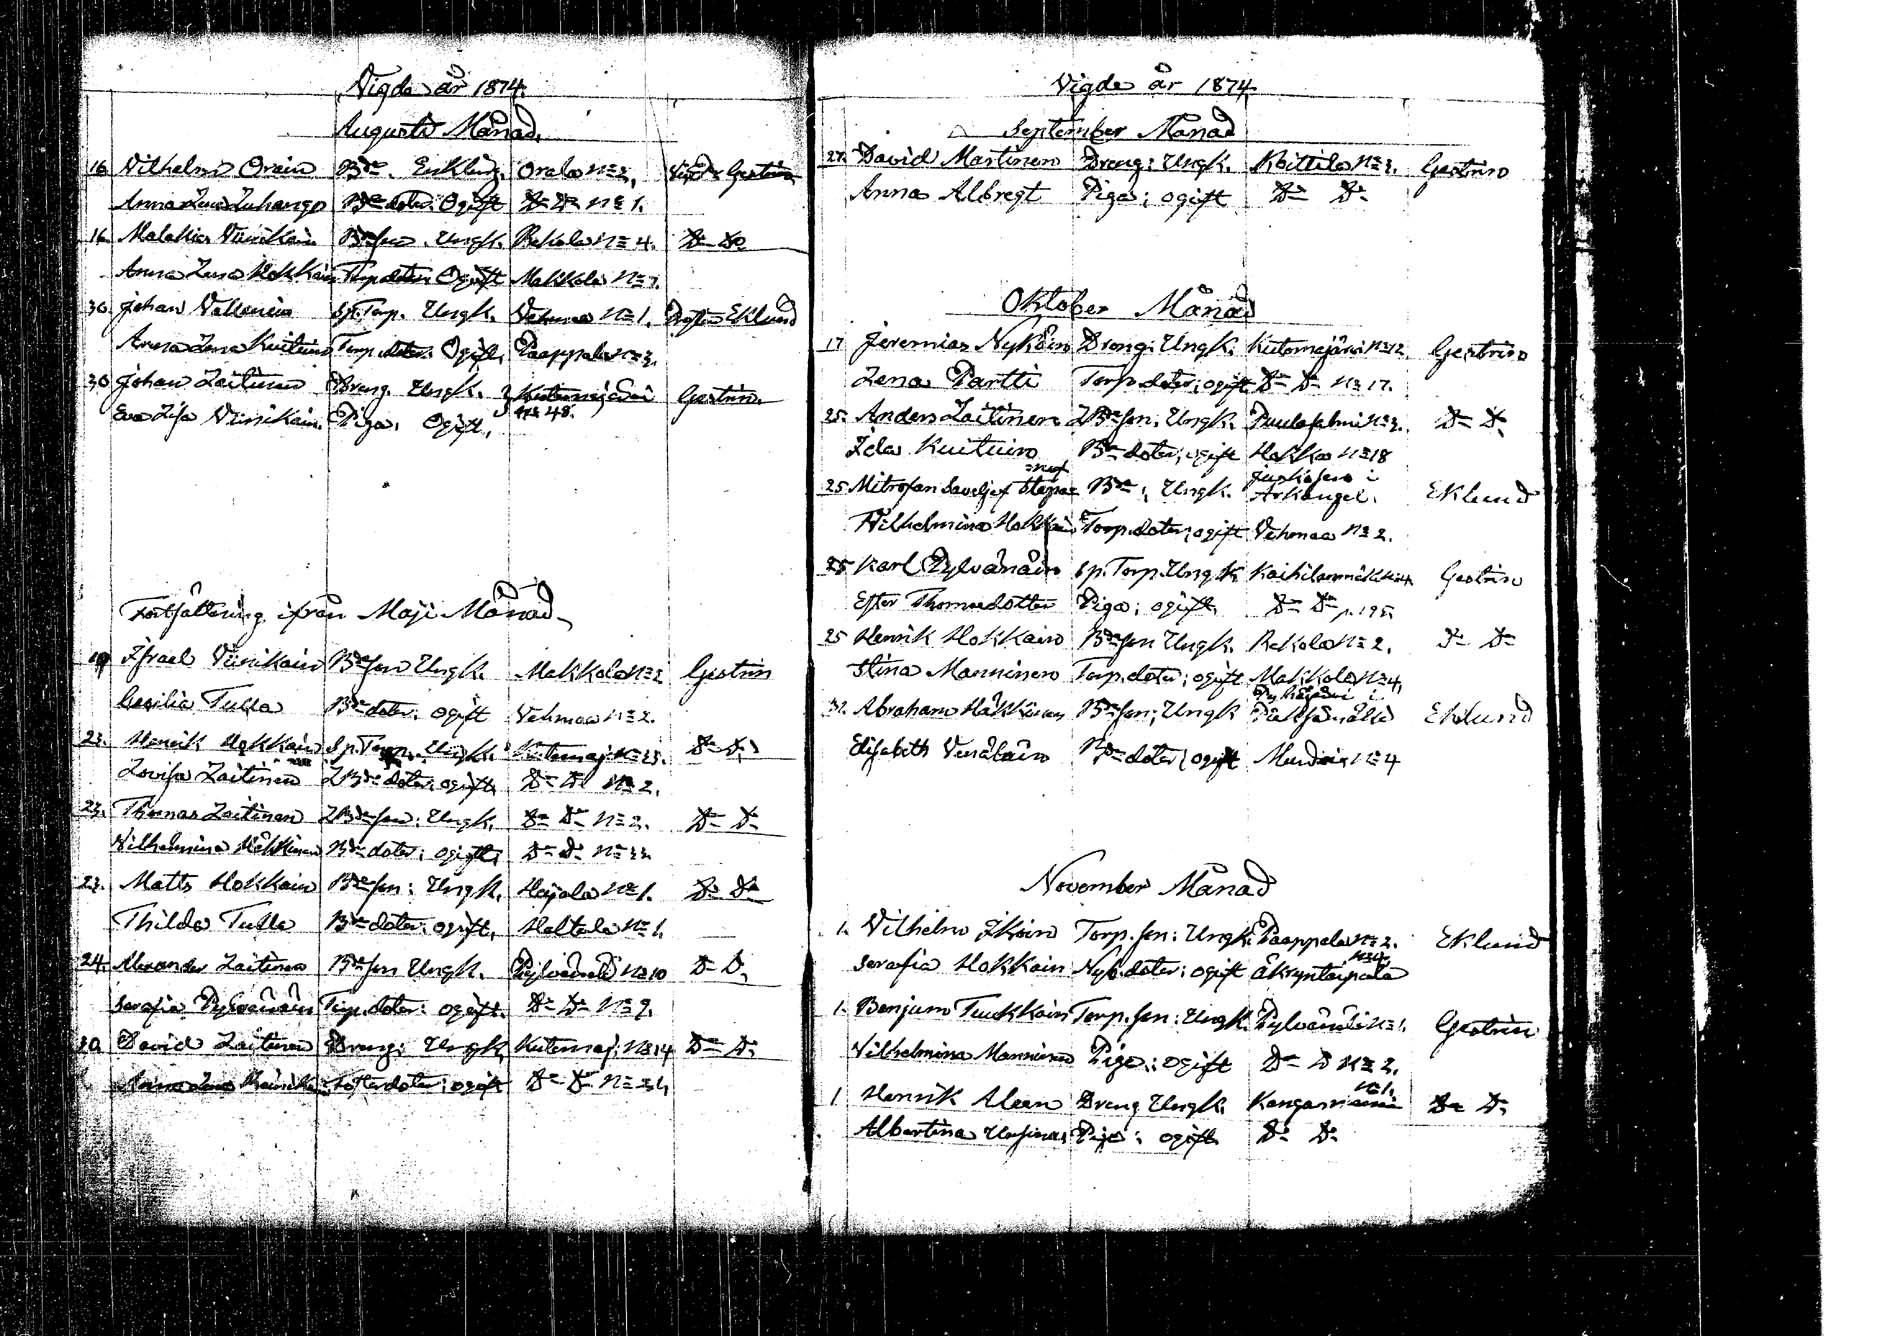 Vigde år 1874.
Augusti Månad.
16. Vilhelm Orain Bde. Enkling. Orala N=2, Gestrin
Anna Lena Luhango Bde doter. Ogift Do Do N=1.
16. Malakias Viinikain Bdeson. Ungk. Rekola N=4. Do Do
Anna Lena Hokkain Torp.doter. Ogift Makkola N=7.
30. Johan Vallenius Sp.Torp. Ungk. Vehmaa N=1. Eklund
Anna Lena Kuitunen Torp.doter. Ogift, Paappala N=3.
30. Johan Laitinen Dreng. Ungk. Kutemajärvi Gestrin.
Eva Lisa Viinikain. Piga. Ogift, N=48.
Fortsättning ifrån Maji Månad
19 Israel Viinikain Bdeson Ungk. Makkola N=2 Gestrin
Cecilia Tulla Bde doter. ogift Vehmaa N=2.
23. Henrik Hokkain Sp.Torp. Ungk. Kutemaj. N=35. Do Do
Lovisa Laitinen LBde doter. ogift, Do Do N=2.
23. Thomas Laitinen LBdeson. Ungk. Do Do N=2. Do Do
Vilhelmina Häkkinen Bde doter; ogift; Do Do N=33.
23. Matts Hokkain Bdeson: Ungk. Hajola N=1. Do Do
Thilda Tulla Bde doter: ogift, Haltala N=1.
24. Alexander Laitinen Bdeson Ungk. Pylvänälä N=10 Do Do
Serafia Pylvänäin Torp.doter: ogift. Do Do N=9.
30. David Laitinen Dreng: Ungk. Kutemaj: N=14 Do Do
Anna Lena doter; ogift Do Do N=34
Vigde år 1874
September Månad
27. David Martinen Dreng: Ungk. Koittila N=3. Gestrin
Anna Albregt Piga; ogift Do Do
Oktober Månad
17 Jeremias Nykäin Dreng: Ungk. Kutemajärvi N=12. Gestrin
Lena Partti Torp doter; ogift Do Do N=17.
25. Anders Laitinen LBdeson. Ungk. Puulasalmi N=3. Do Do
Ida Kuituin Bde doter; ogift Hokka N=18
25 Mitrofan Saveljef Bde; Ungk. i Arkangel. Eklund
Wilhelmina Hokkain Torp.doter; ogift Vehmaa N=2.
25 Karl Pylvänäin Sp.Torp. Ungk Gestrin
Ester Thomasdotter Piga; ogift, Do Do p.195.
25 Henrik Hokkain Bdeson Ungk. Rekola N=2. Do Do
Stina Manninen Torp.doter; ogift Makkola N=4,
31. Abraham Häkkinen Bdeson; Ungk Eklund
Elisabeth Venäläin Bde doter; ogift N=4
November Månad
1. Vilhelm Ikoin Torp.son: Ungk. Paappala N=2. Eklund
Serafia Hokkain Nyb.doter; ogift N=4
1. Benjam Tuukkain Torp.son: Ungk. Pylvänälä N=1. Gestrin
Vilhelmina Manninen Piga: ogift Do Do N=2.
1 Henrik Aleen Dreng Ungk. Kangasniemi N=1. Do Do
Albertina Piga: ogift. Do Do